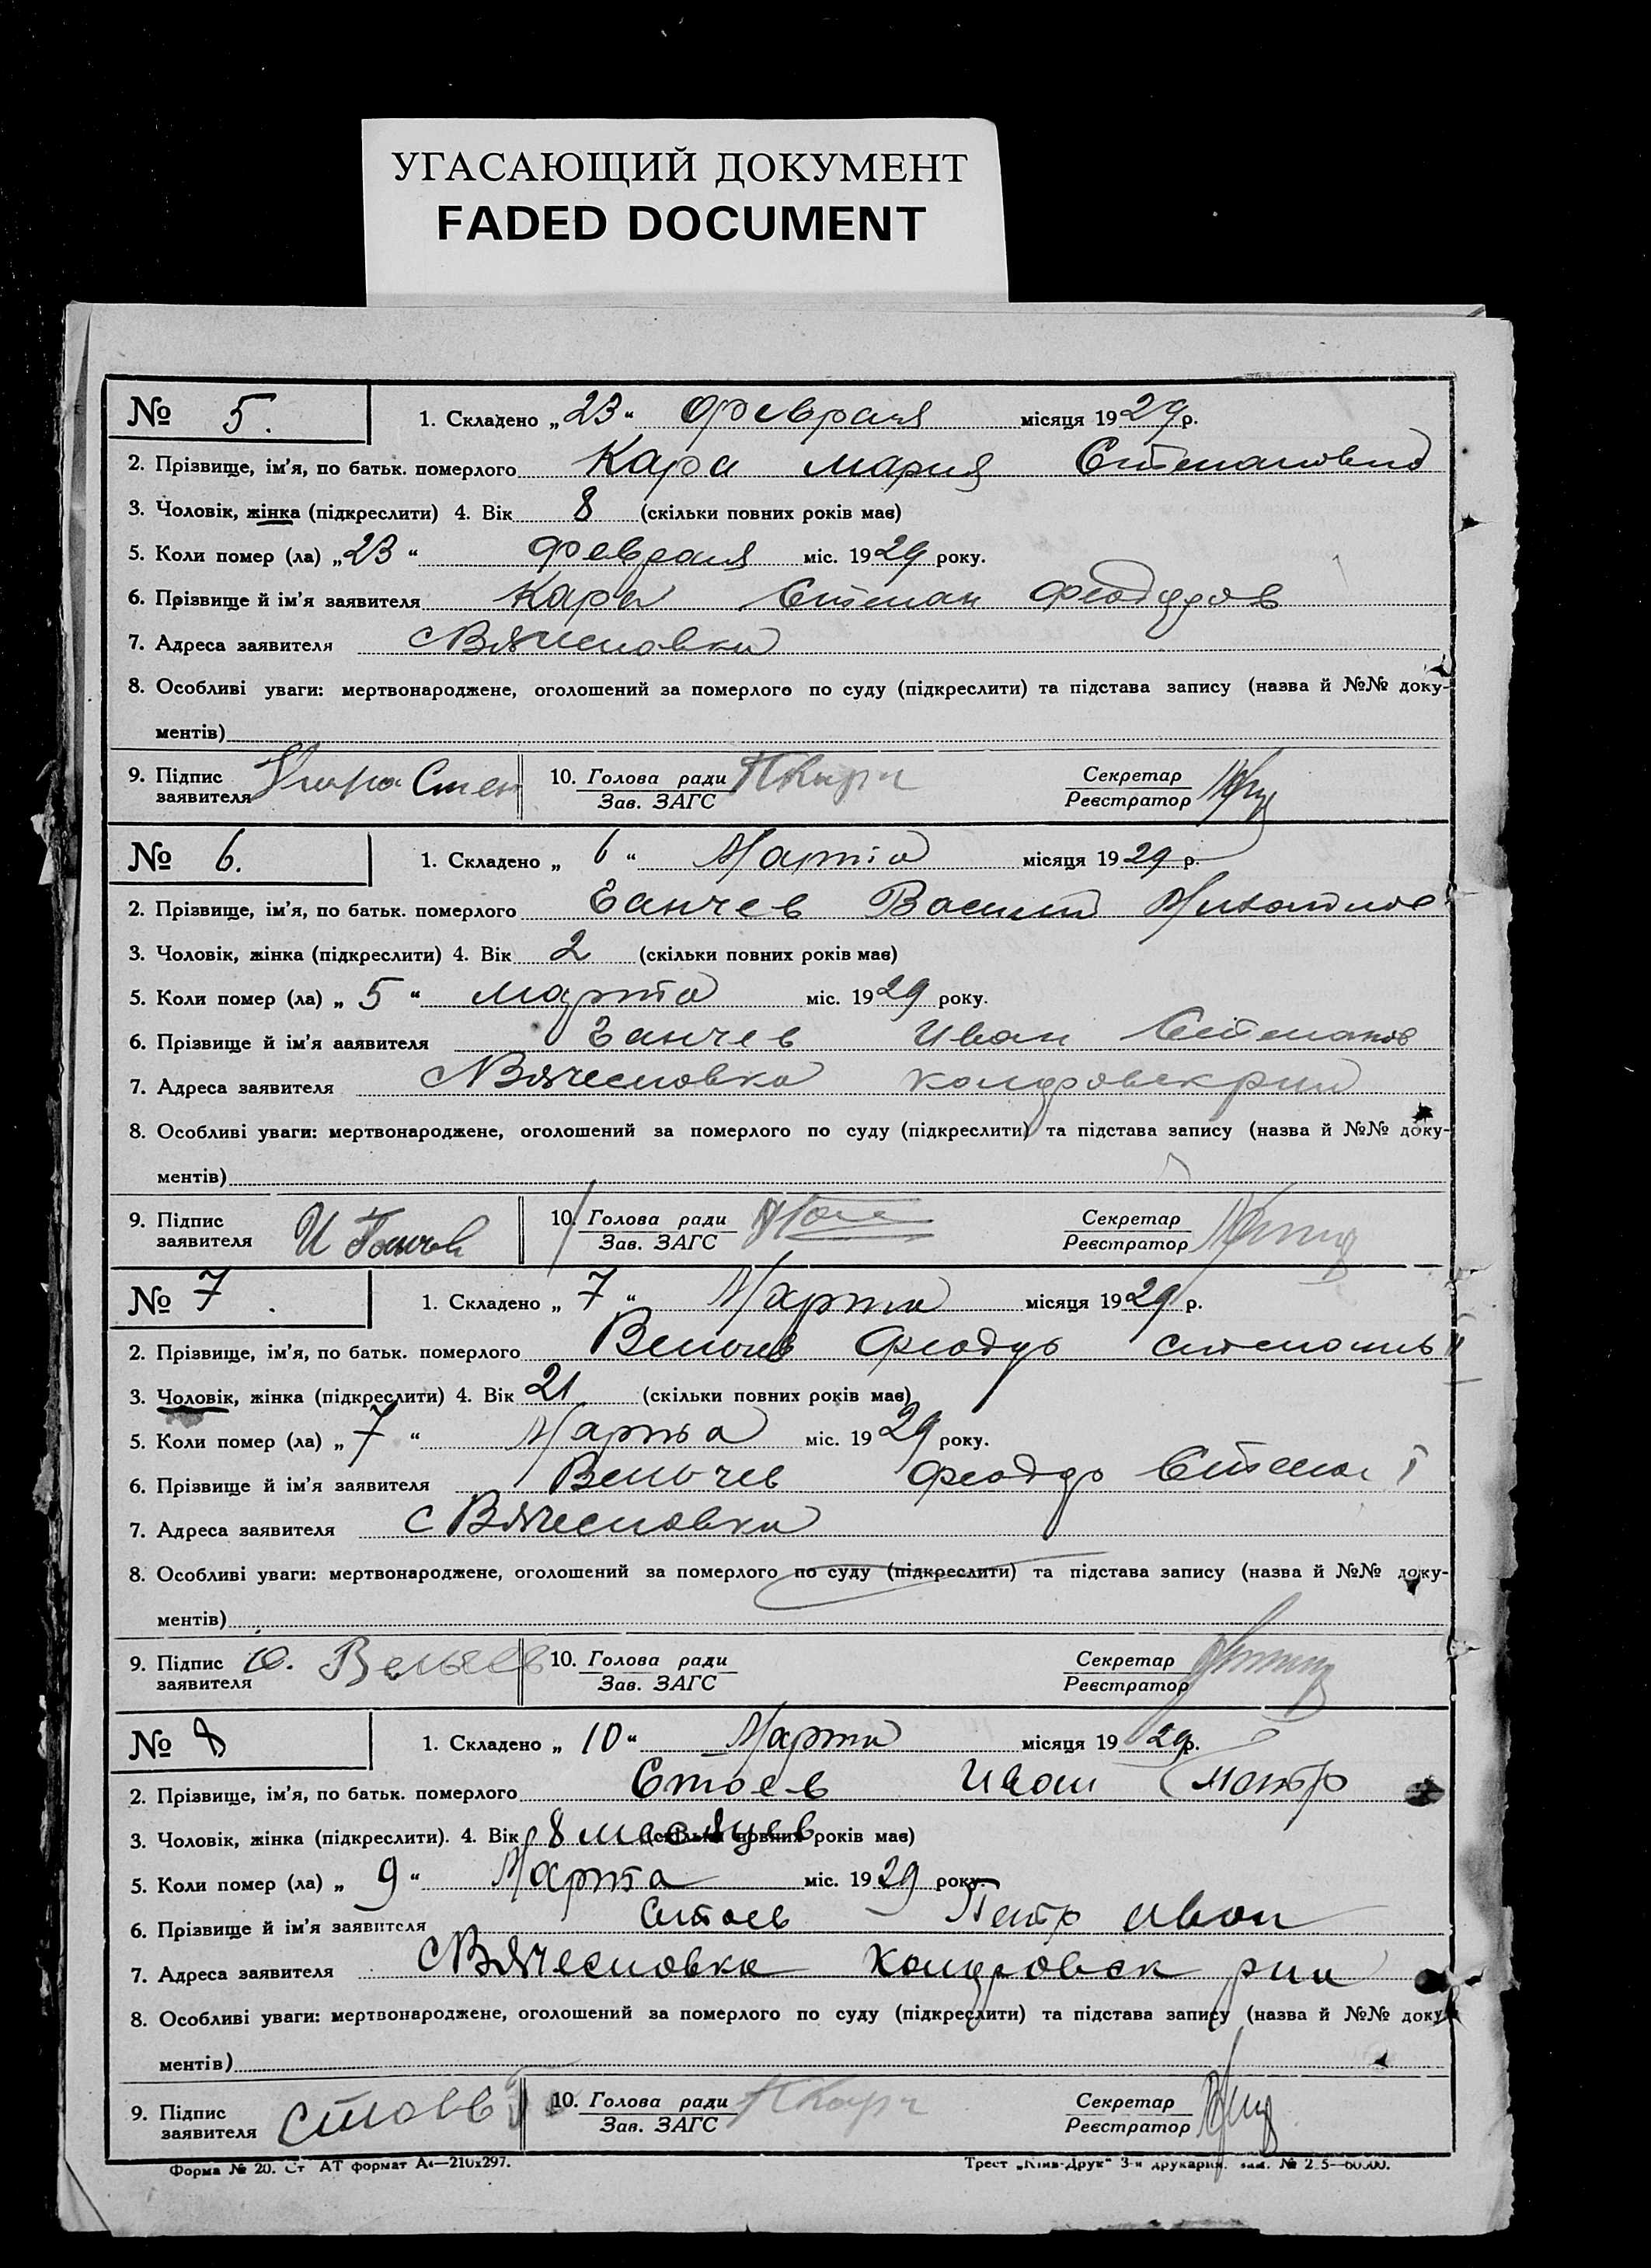 УГАСАЮЩИЙ ДОКУМЕНТ
FADED DOCUMENT
№ 5. 1. Складено „23“ Февраля місяця 1929 р.
2. Прізвище, ім’я, по батьк. померлого Кара Мария Степановна
3. Чоловік, жінка (підкреслити) 4. Вік 8 (скільки повних років має)
5. Коли помер (ла) „23“ Февраля міс. 1929 року.
6. Прізвище й ім’я заявителя Кара Степан Феодоров
7. Адреса заявителя с Вячеславка
8. Особливі уваги: мертвонароджене, оголошений за померлого по суду (підкреслити) та підстава запису (назва й №№ доку-
ментів)
9. Підпис заявителя Кара Степ 10. Голова ради Зав. ЗАГС ПКара Секретар Реєстратор
№ 6. 1. Складено „6“ Марта місяця 1929 р.
2. Прізвище, ім’я, по батьк. померлого Ганчев Василий
3. Чоловік, жінка (підкреслити) 4. Вік 2 (скільки повних років має)
5. Коли помер (ла) „5“ марта міс. 1929 року.
6. Прізвище й ім’я заявителя Ганчев Иван Степанов
7. Адреса заявителя с Вячеславка
8. Особливі уваги: мертвонароджене, оголошений за померлого по суду (підкреслити) та підстава запису (назва й №№ доку-
ментів)
9. Підпис заявителя И Ганчев 10. Голова ради Зав. ЗАГС Секретар Реєстратор
№ 7. 1. Складено „7“ Марта місяця 1929 р.
2. Прізвище, ім’я, по батьк. померлого Велчев Феодор
3. Чоловік, жінка (підкреслити) 4. Вік 21 (скільки повних років має)
5. Коли помер (ла) „7“ Марта міс. 1929 року.
6. Прізвище й ім’я заявителя Велчев Феодор Степан
7. Адреса заявителя с Вячеславка
8. Особливі уваги: мертвонароджене, оголошений за померлого по суду (підкреслити) та підстава запису (назва й №№ доку-
ментів)
9. Підпис заявителя Велчев 10. Голова ради Зав. ЗАГС Секретар Реєстратор
№ 8 1. Складено „10“ Марта місяця 1929 р.
2. Прізвище, ім’я, по батьк. померлого Стоев Иван Петр
3. Чоловік, жінка (підкреслити). 4. Вік 8 месяцев (скільки повних років має)
5. Коли помер (ла) „9“ Марта міс. 1929 року.
6. Прізвище й ім’я заявителя Стоев Петр Иван
7. Адреса заявителя с Вячеславка
8. Особливі уваги: мертвонароджене, оголошений за померлого по суду (підкреслити) та підстава запису (назва й №№ доку-
ментів)
9. Підпис заявителя Стоев 10. Голова ради Зав. ЗАГС ПКара Секретар Реєстратор
Форма № 20. Ст АТ формат А4—210х297. Трест „Київ-Друк“ 3-я друкарня.